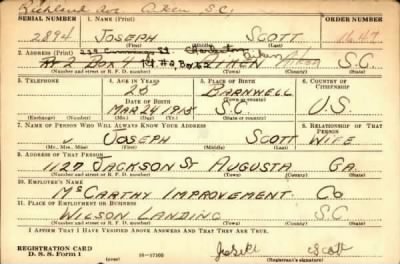 Richland Ave Aiken S.C.
SERIAL NUMBER 1. NAME (Print) ORDER NUMBER
2894 JOSEPH SCOTT 1647
(First) (Middle) (Last)
2. ADDRESS (Print)
RT 2 BOX 4 AIKEN AIKEN S.C.
(Number and street or R. F. D. number) (Town) (County) (State)
3. TELEPHONE 4. AGE IN YEARS 5. PLACE OF BIRTH 6. COUNTRY OF CITIZENSHIP
25 BARNWELL
DATE OF BIRTH (Town or county)
MAR 24 1915 S.C. U.S.
(Exchange) (Number) (Mo.) (Day) (Yr.) (State or country)
7. NAME OF PERSON WHO WILL ALWAYS KNOW YOUR ADDRESS 8. RELATIONSHIP OF THAT PERSON
JOSEPH SCOTT WIFE
(Mr., Mrs., Miss) (First) (Middle) (Last)
9. ADDRESS OF THAT PERSON
1127 JACKSON ST AUGUSTA GA.
(Number and street or R. F. D. number) (Town) (County) (State)
10. EMPLOYER'S NAME
McCARTHY IMPROVEMENT CO
11. PLACE OF EMPLOYMENT OR BUSINESS
WILSON LANDING S.C
(Number and street or R. F. D. number) (Town) (County) (State)
I AFFIRM THAT I HAVE VERIFIED ABOVE ANSWERS AND THAT THEY ARE TRUE.
REGISTRATION CARD
D. S. S. Form 1 16-17105 Scott
(Registrant's signature)